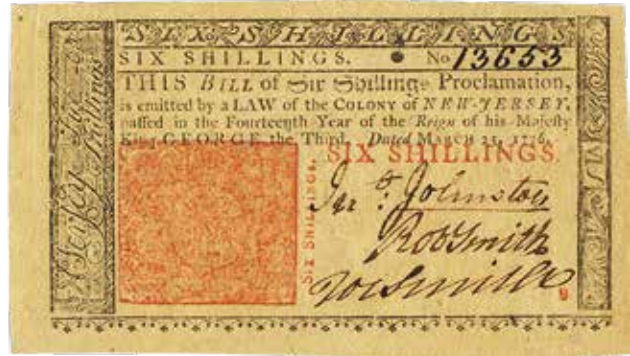 SIX SHILLINGS
SIX SHILLINGS. No 13653
THIS BILL of Six Shillings Proclamation,
is emitted by a LAW of the COLONY of NEW-JERSEY,
passed in the Fourteenth Year of the Reign of his Majesty
King GEORGE the Third. Dated MARCH 25, 1776.
SIX SHILLINGS.
SIX SHILLINGS.
Jno Johnston
Robt Smith
Jos Smith
Jersey
Shillings
SIX